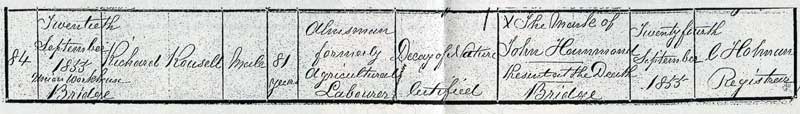 84
Twentieth
September
1855
Union Workhouse
Bridge
Richard Rousell
Male
81
years
Almsman
formerly
Agricultural
Labourer
Decay of Nature
Certified
X The Mark of
John Hammond
Present at the Death
Bridge
Twenty fourth
September
1855
C Holman
Registrar